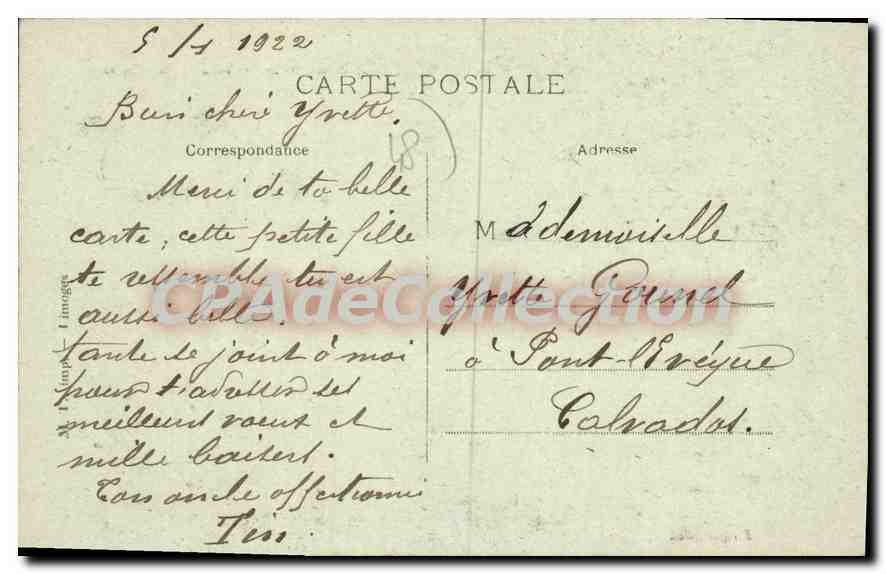 5/1 1922
CARTE POSTALE
Bien chère Yvette.
18
Correspondance
Merci de ta belle
carte, cette petite fille
te ressemble tu est
aussi belle.
tante se joint à moi
pour t'adresser ses
meilleurs voeux et
mille baisers.
Ton oncle affectionné
Adresse
Mademoiselle
Yvette
à Pont-l'Evéque
Calvados.
CPAdeCollection.com
Limoges